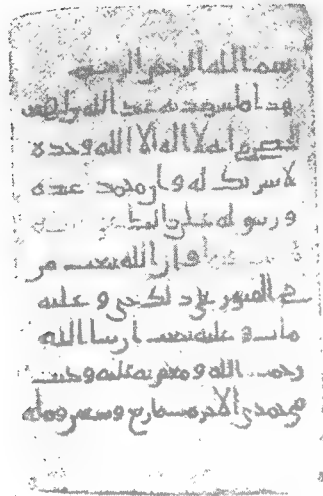 بسم الله الرحمن الرحيم
هذا ما يشهد به عبد الله بن لهيعة
الحضرمي انه لا اله الا الله وحده
لا شريك له وان محمد عبده
ورسوله
وان الله يبعث من
في القبور على ذلك حيي وعليه
مات وعليه يبعث ان شا الله
رحمت الله ومغفرته عليه وكتب
في جمدى الاخرة سنة اربع وسبعين ومائه